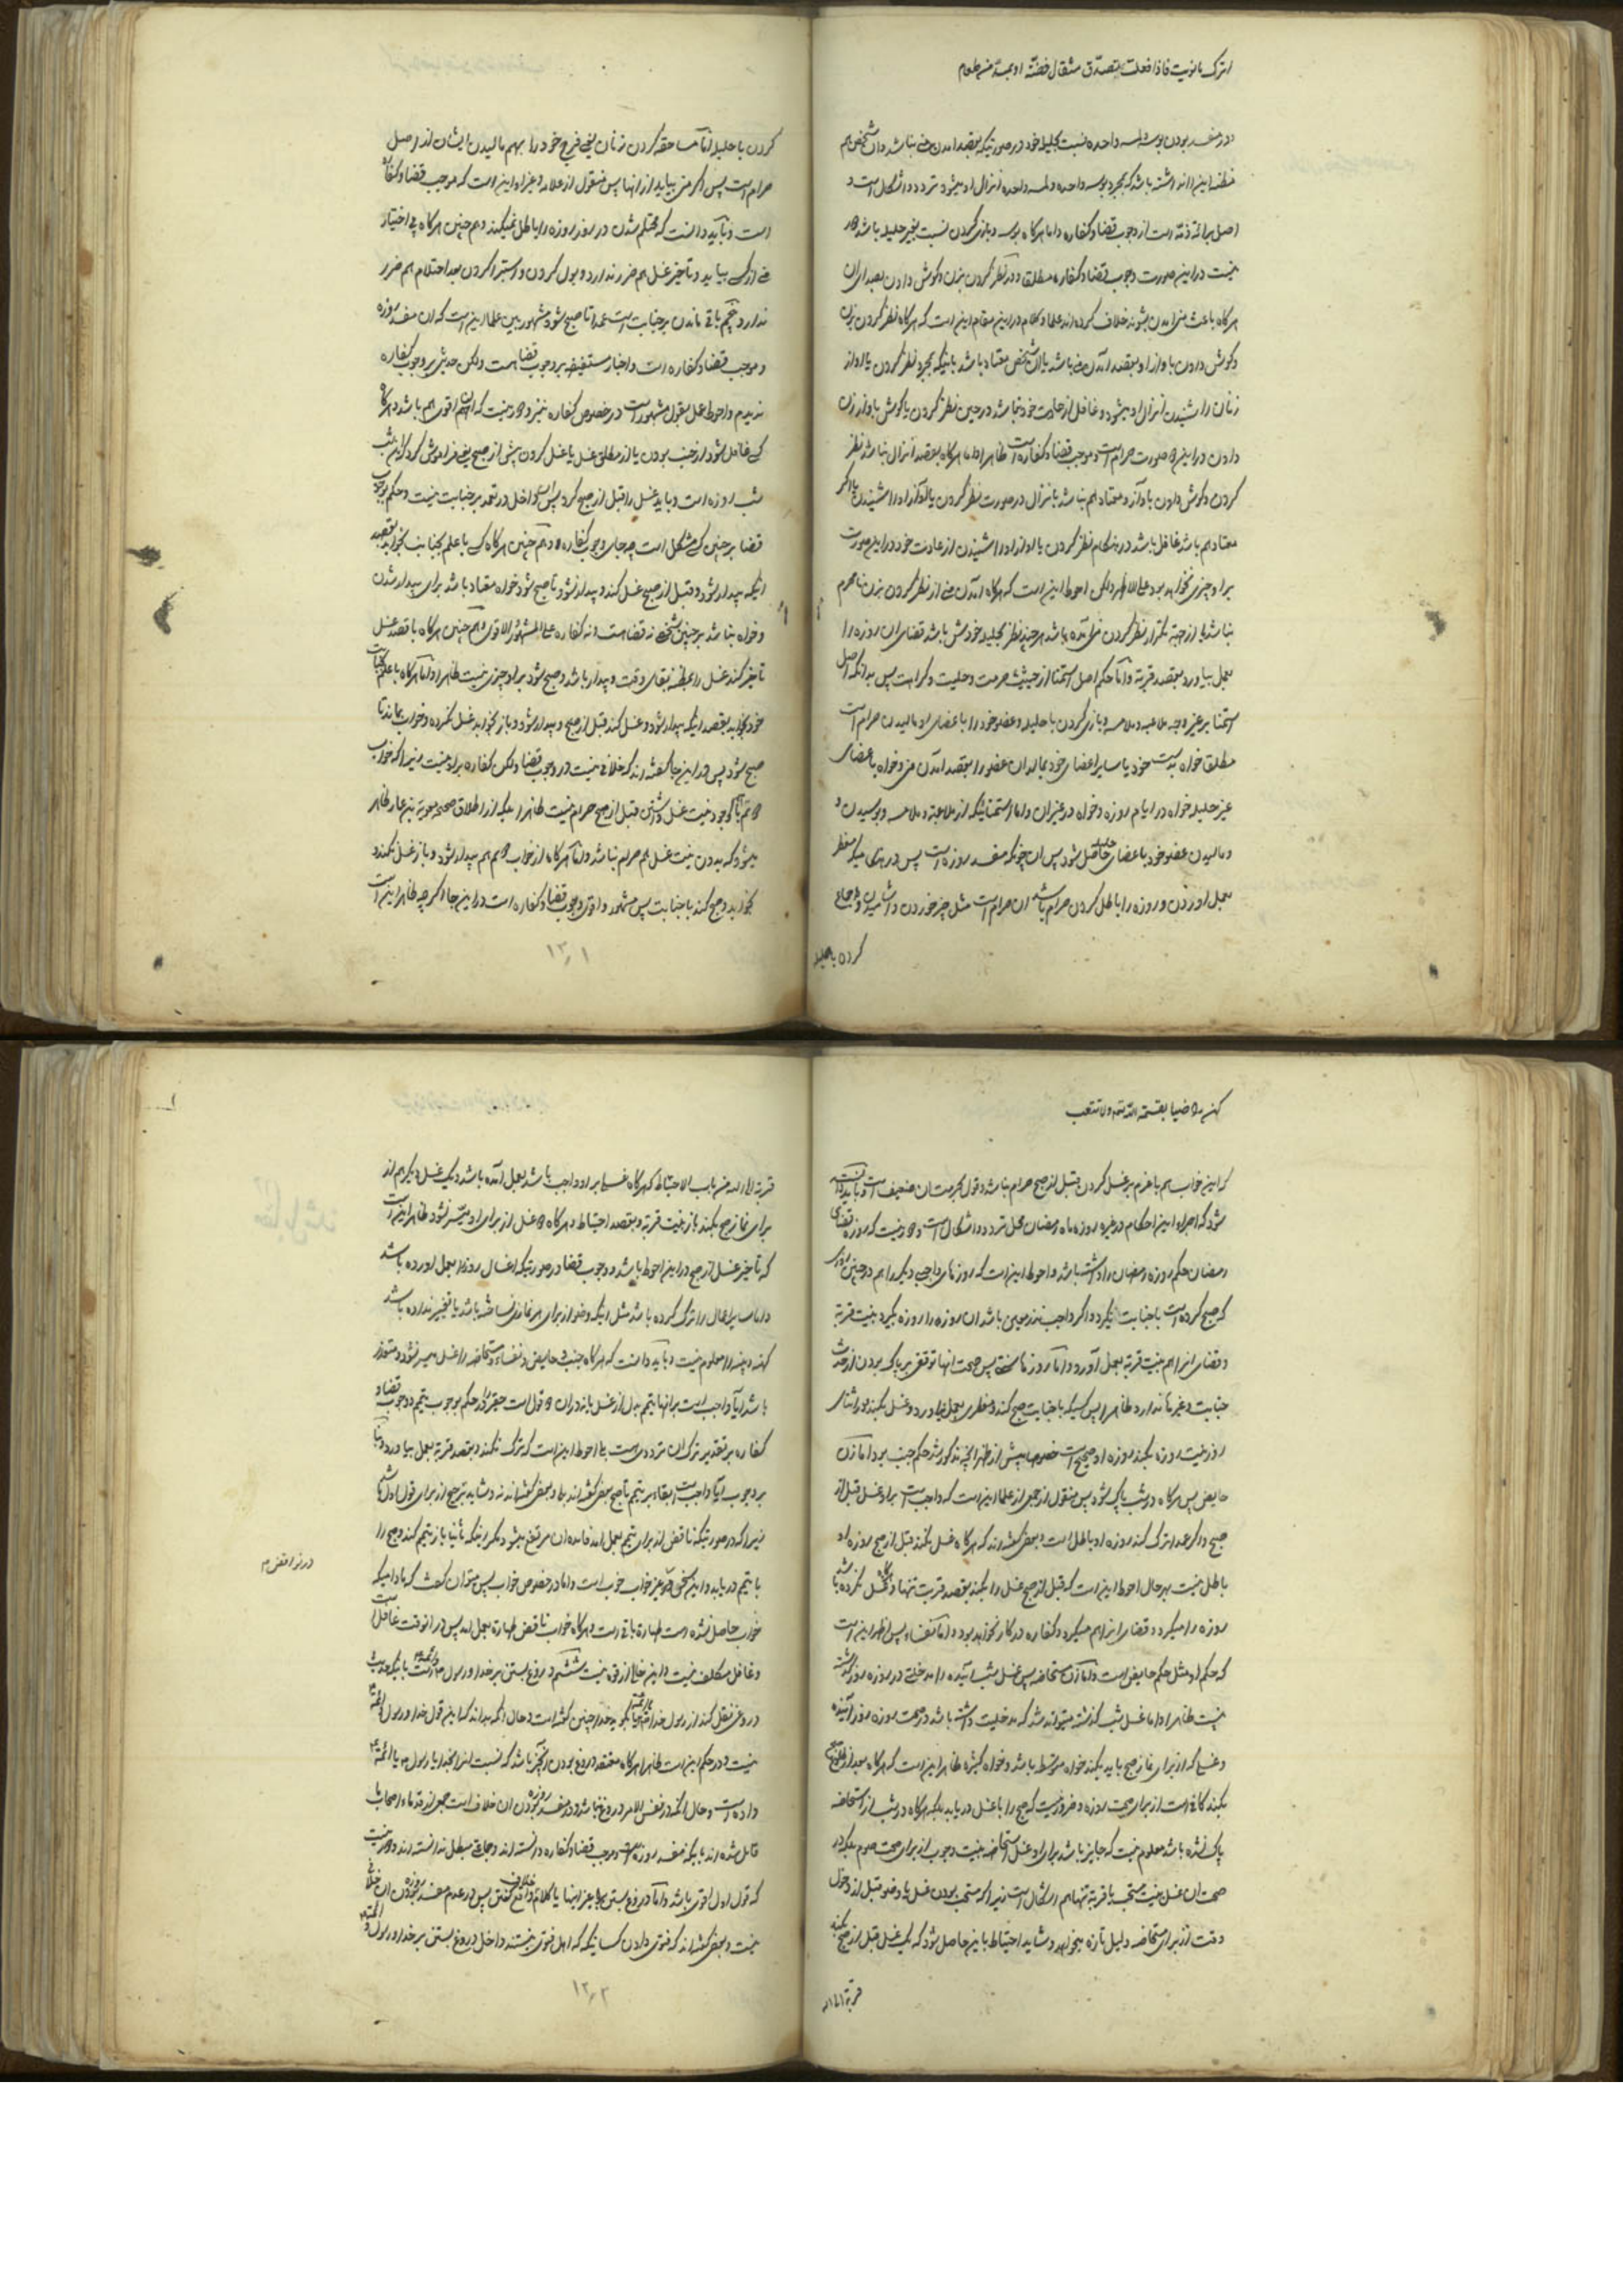 اترک مانویت فاذا فعلت بتصدق مثقال فضة او بمد من طعام
و در مفسد بودن بوسه و لمسه واحده نسبت بحلیله خود در صورتیکه بقصد امدن منی نباشد و ان شخص هم
مظنه اینرا نداشته باشد که بمجرد بوسه واحده و لمسه واحده انزال او میشود تردد و اشکال است و
اصل برائة ذمه است از وجوب قضا و کفاره و اما هرگاه بوسه و بازی کردن نسبت بغیر حلیله باشد
نیست در این صورت وجوب قضا و کفاره مطلقا و در نظر کردن بزن و گوش دادن بصدای ان
هرگاه باعث منی امدن بشوند خلاف کرده اند علما و کلام در این مقام این است که هرگاه نظر کردن بزن
و گوش دادن باواز او بقصد آمدن منی باشد یا ان شخص معتاد باشد باینکه بمجرد نظر کردن یا اواز
زنان را شنیدن انزال او میشود و غافل از عادت خود نباشد در حین نظر کردن یا گوش باواز زن
دادن در این صورت حرام است و موجب قضا و کفاره است ظاهرا و اما هرگاه بقصد انزال نباشد نظر
کردن و گوش دادن باواز و معتاد هم نباشد بانزال در صورت نظر کردن یا آواز او را شنیدن یا اگر
معتاد هم باشد غافل باشد در هنگام نظر کردن یا اواز او را شنیدن از عادت خود در این صورت
بر او چیزی نخواهد بود علی الاظهر و لکن احوط این است که هرگاه آمدن منی از نظر کردن بزن نامحرم
نباشد یا از جهة تکرار نظر کردن منی آمده باشد هر چند نظر بحلیله خودش باشد قضای ان روزه را
بعمل بیاورد بقصد قربة و اما حکم اصل استمنا از حیثیت حرمت و حلیت و کراهت پس بدانکه اصل
استمنا بر غیر وجه ملاعبه و ملامسه و بازی کردن با حلیله و عضو خود را باعضای او مالیدن حرام است
مطلقا خواه بدست خود یا سایر اعضای خود بمالد ان عضو را بقصد آمدن منی و خواه باعضای
غیر حلیله خواه در ایام روزه و خواه در غیر ان و اما استمنائیکه از ملاعبة و ملامسه و بوسیدن و
و مالیدن عضو خود باعضای حلیله حاصل شود پس ان چونکه مفسد روزه است پس در هر جائیکه مفطر
بعمل اوردن و روزه را باطل کردن حرام باشد ان حرام است مثل چیز خوردن و اشامیدن و جماع
کردن با حلیله
کردن با حلیله و اما مساحقه کردن زنان یعنی فرج خود را بهم مالیدن ایشان از اصل
حرام است پس اگر منی بیاید از انها پس منقول از علامه و غیر او این است که موجب قضا و کفاره
است و باید دانست که محتلم شدن در روز روزه را باطل نمیکند و هم چنین هرگاه بی اختیار
منی از کسی بیاید و تاخیر غسل هم ضرر ندارد و بول کردن و استبرا کردن بعد احتلام هم ضرر
ندارد پنجم باقی ماندن بر جنابت است عمدا تا صبح شود و مشهور بین علما این است که ان مفسد روزه
و موجب قضا و کفاره است و اخبار مستفیضه بر وجوب قضا هست و لکن حدیثی بر وجوب کفاره
ندیدم و احوط عمل بقول مشهور است در خصوص کفاره نیز و دور نیست که ان هم اقوی هم باشد و هرگاه
کسی غافل شود از جنب بودن یا از مطلق غسل یا غسل کردن پیش از صبح یعنی فراموش کرد که این شب
شب روزه است و باید غسل را قبل از صبح کرد پس ان داخل در تعمد بر جنابت نیست و حکم بوجوب
قضا بر چنین کسی مشکل است چه جای وجوب کفاره و هم چنین هرگاه کسی با علم بجنابت بخوابد بقصد
اینکه بیدار شود و قبل از صبح غسل کند و بیدار نشود تا صبح شود خواه معتاد باشد برای بیدار شدن
و خواه نباشد بر چنین شخصی نه قضا هست و نه کفاره علی المشهور الاقوی و هم چنین هرگاه با قصد غسل
تاخیر کند غسل را بمظنه بقای وقت و بیدار باشد و صبح شود بر او چیزی نیست ظاهرا و اما هرگاه با علم بجنابت
خود بخوابد بقصد اینکه بیدار شود و غسل کند قبل از صبح و بیدار شود و باز بخوابد غسل نکرده و خواب بماند تا
صبح شود پس در اینجا گفته اند که خلافی نیست در وجوب قضا و لکن کفاره بر او نیست زیرا که خواب
دوم با وجود نیت غسل داشتن قبل از صبح حرام نیست ظاهرا بلکه از اطلاق صحیحه معویة بن عمار ظاهر
میشود که بدون نیت غسل هم حرام نباشد و اما هرگاه از خواب دوم هم بیدار شود و باز غسل نکند و
بخوابد و صبح کند با جنابت پس مشهور و اقوی وجوب قضا و کفاره است در اینجا و اگر چه ظاهر این است
۱۳۰۱
کن راضیا بقسمة الله تعم و لا تتعب
که این خواب هم با عزم بر غسل کردن قبل از صبح حرام نباشد و قول بحرمتان ضعیف است و باید دانسته
شود که اجراء این احکام در غیر روزه ماه رمضان محل تردد و اشکال است و دور نیست که روزه قضای
رمضان حکم روزه رمضان را داشته باشد و احوط این است که روزهای واجب دیگر را هم در چنین روزی
که صبح کرده است با جنابت نگیرد و اگر واجب نذر معین باشد ان روزه را روزه بگیرد بنیت قربة
و قضای انرا هم بنیت قربة بعمل آورد و اما روزهای سنة پس صحت انها توقفی بر پاک بودن از حدث
جنابت و غیر ها ندارد ظاهرا پس کسیکه با جنابت صبح کند و مفطری بعمل نیاورد و غسل بکند در اثنای
روز نیت روزه بکند روزه او صحیح است خصوصا پیش از ظهر انچه مذکور شد حکم جنب بود اما زن
حایض پس هرگاه در شب پاک شود پس منقول از جمعی از علما این است که واجب است بر او غسل قبل از
صبح و اگر عمدا ترک کند روزه او باطل است و بعضی گفته اند که هرگاه غسل نکند قبل از صبح روزه او
باطل نیست بهر حال احوط این است که قبل از صبح غسل را بکند بقصد قربت تنها و هرگاه غسل نکرده باشد
روزه را میگیرد و قضای انرا هم میگیرد و کفاره در کار نخواهد بود و اما نفساء پس اظهر این است
که حکم او مثل حکم حایض است و اما زن مستحاضه پس غسل شب آینده را مدخلیتی در روزه روز گذشته
نیست ظاهرا و اما غسل شب گذشته میتواند شد که مدخلیت داشته باشد در صحت روزه روز آینده
و غسلی که از برای نماز صبح باید بکند خواه متوسطه باشد و خواه کثیره ظاهر این است که هرگاه بعد از طلوع صبح
بکند کافی است از برای صحت روزه و ضرور نیست که صبح را با غسل دریابد بلکه هرگاه در شب از استحاضه
پاک نشده باشد معلوم نیست که جایز باشد برای او غسل استحاضه بنیت وجوب از برای صحت صوم بلکه در
صحت ان غسل بنیت مستحب یا قربة تنها هم اشکال است زیرا که مستحب بودن غسل یا وضو قبل از دخول
وقت از برای مستحاضه دلیل تازه میخواهد و شاید احتیاط باین حاصل شود که یک غسل قبل از صبح بکند
قربة الی الله
قربة الی الله من باب الاحتیاط که هرگاه غسلی بر او واجب باشد بعمل آمده باشد و یک غسل دیگر هم از
برای نماز صبح بکند باز بنیت قربة و بقصد احتیاط و هرگاه دو غسل از برای او میسر نشود ظاهر این است
که تاخیر غسل از صبح در این احوط باشد و وجوب قضا در صورتیکه اغسال روز را بعمل اورده باشد
و اما سایر اعمال را ترک کرده باشد مثل اینکه وضو از برای هر نمازی نساخته باشد یا تغییر نداده باشد
کهنه و پنبه را معلوم نیست و باید دانست که هرگاه جنب و حایض و نفساء و مستحاضه را غسل میسر نشود و متعذر
باشد آیا واجب است بر انها تیمم بدل از غسل یا نه در ان دو قول است حقیر را در حکم بوجوب تیمم و وجوب قضا و
کفاره بر تقدیر ترک ان ترددی است اما احوط این است که ترک نکند و بقصد قربة بعمل بیاورد و بنا
بر وجوب آیا واجب است ابقاء بر تیمم تا صبح بعضی گفته اند بلی و بعضی گفته اند نه و شاید ترجیح از برای قول اول باشد
زیرا که در صورتیکه ناقض از برای تیمم بعمل امد فایده ان مرتفع میشود مگر اینکه ثانیا باز تیمم کند و صبح را
با تیمم دریابد و این سخن در غیر خواب خوب است و اما در خصوص خواب پس میتوان گفت که مادامیکه
خواب حاصل نشده است طهارة باقی است و هرگاه خواب ناقض طهارة بعمل امد پس در انوقت غافل است
و غافل مکلف نیست و این خالی از قوه نیست ششم دروغ بستن بر خدا و رسول و ائمه است باینکه حدیث
دروغی نقل کند از رسول خدا یا ائمه یا بگوید خدا چنین گفته است و حال آنکه بداند که این قول خدا و رسول و ائمه
نیست و در حکم این است ظاهرا هرگاه معتقد دروغ بودن ان چیز باشد که نسبت انرا بخدا یا رسول یا ائمه
داده است و حال انکه در نفس الامر دروغ نباشد و در مفسد روزه بودن ان خلاف است جمعی از قدماء اصحاب ما
قائل شده اند باینکه مفسد روزه است و موجب قضا و کفاره دانسته اند و جماعتی مبطل ندانسته اند و دور نیست
که قول اول اقوی باشد و اما دروغ بستن بغیر اینها یا کلام خلاف واقع گفتن پس در عدم مفسد روزه بودن ان خلافی
نیست و بعضی گفته اند که فتوی دادن کسانیکه که اهل فتوی نیستند داخل دروغ بستن بر خدا و رسول و ائمه
۱۳۰۲